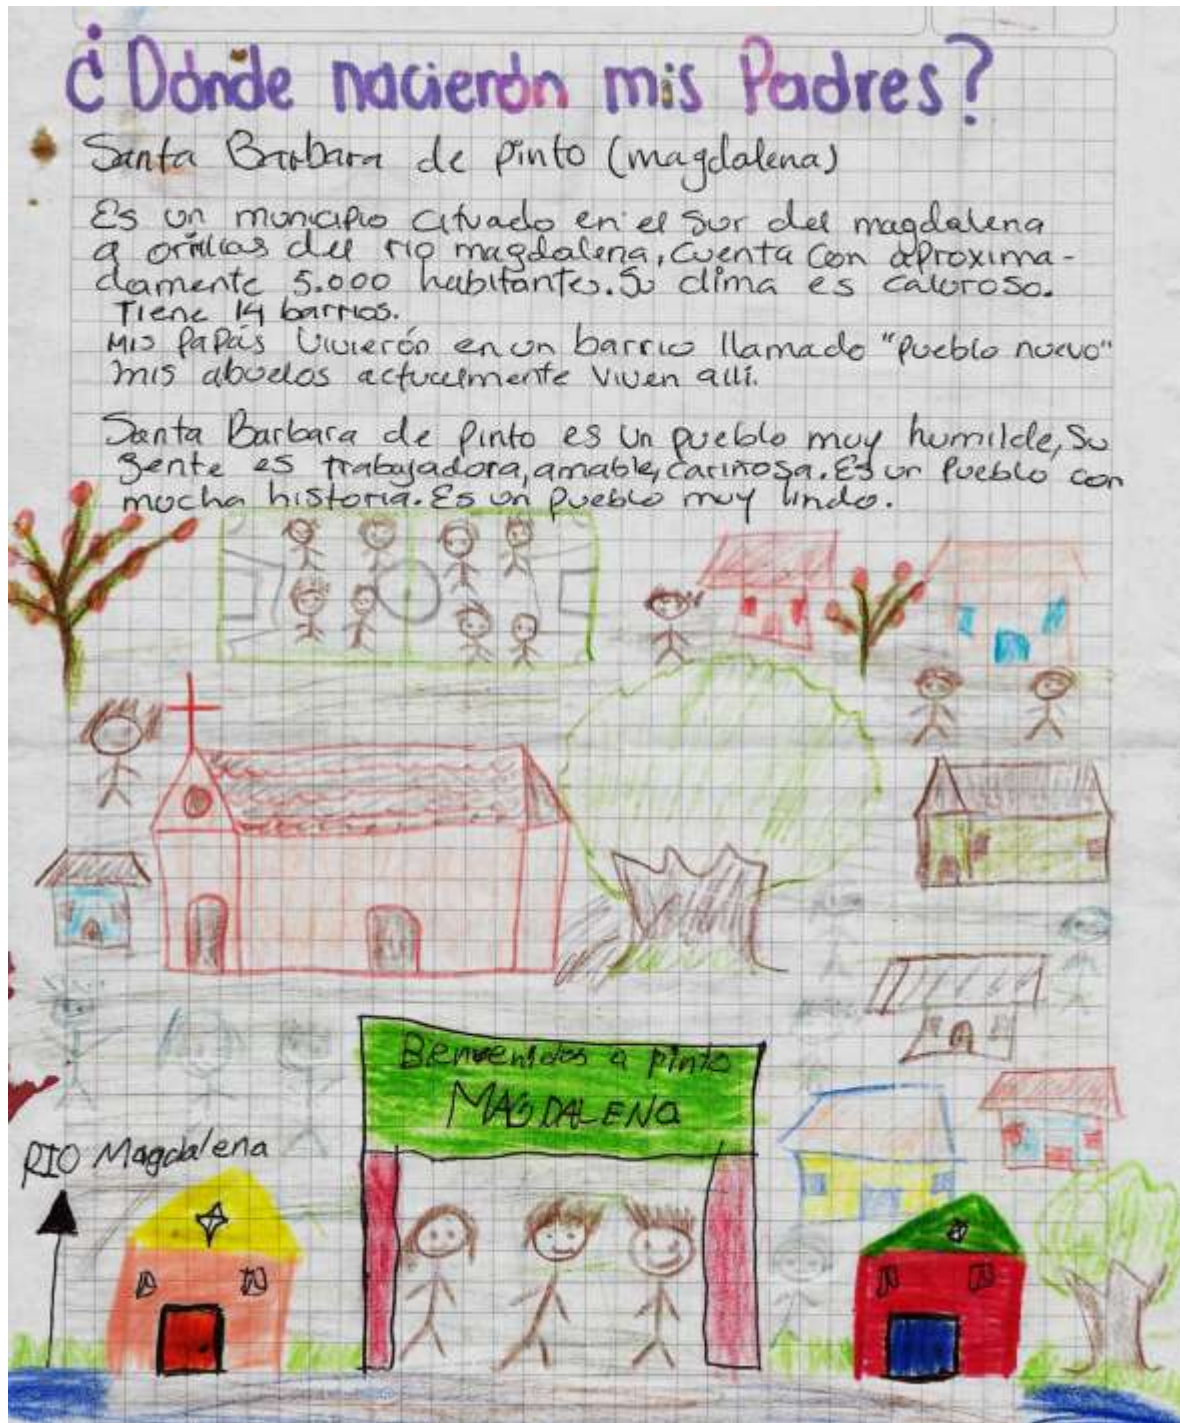 ¿Dónde nacierón mis Padres?
Santa Barbara de pinto (magdalena)
Es un municipio cituado en el sur del magdalena
a orillas del rio magdalena, cuenta con aproxima-
damente 5.000 habitantes. Su clima es caluroso.
Tiene 14 barrios.
Mis papás vivierón en un barrio llamado "pueblo nuevo"
mis abuelos actualmente viven allí.
Santa Barbara de pinto es un pueblo muy humilde, su
gente es trabajadora, amable, cariñosa. Es un pueblo con
mucha historia. Es un pueblo muy lindo.
Bienvenidos a pinto
MAGDALENA
RIO Magdalena